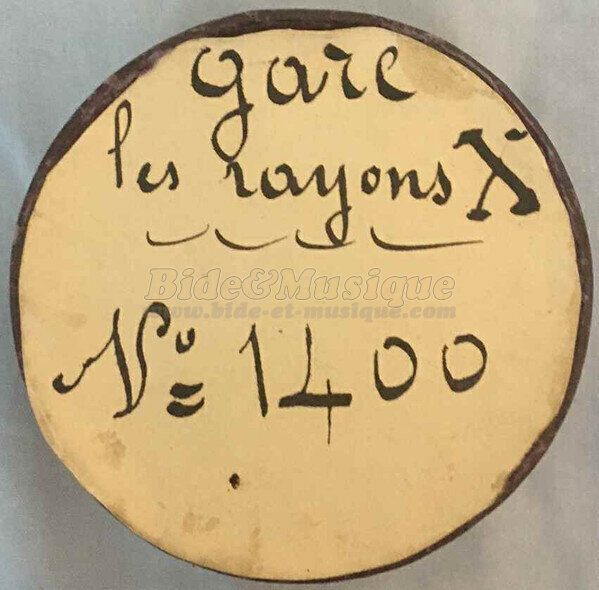 Gare
les rayons X
Bide&Musique
www.bide-et-musique.com
No 1400